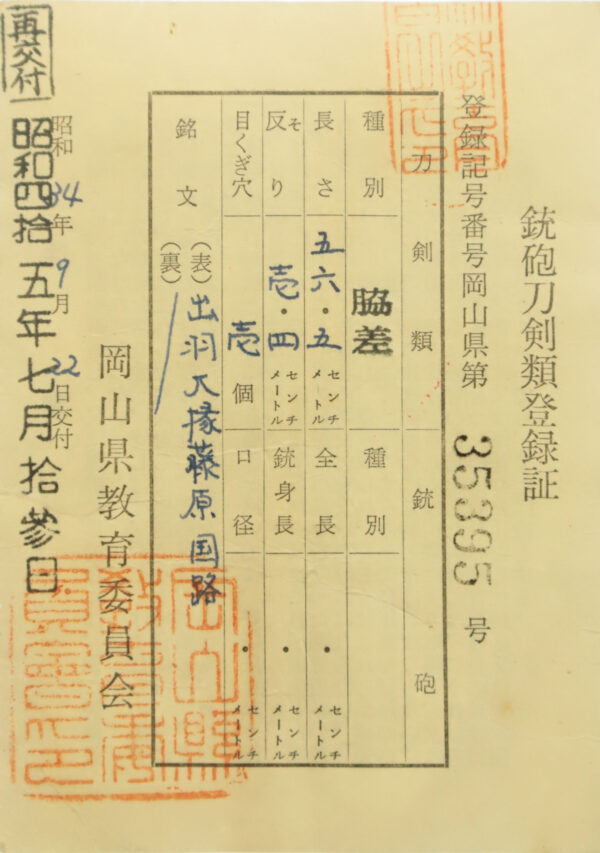 銃砲刀剣類登録証
登録記号番号岡山県第 35395 号
刀剣類 銃砲
種別 脇差 種別
長さ 五六・五 センチメートル 全長 ・ センチメートル
反り そ 壱・四 センチメートル 銃身長 ・ センチメートル
目くぎ穴 壱個 口径 ・ センチメートル
銘文 (表) 出羽大掾藤原国路
(裏)
岡山県教育委員会
昭和34年9月22日交付
再交付 昭和四拾五年七月拾参日
岡山縣教育委員會之印